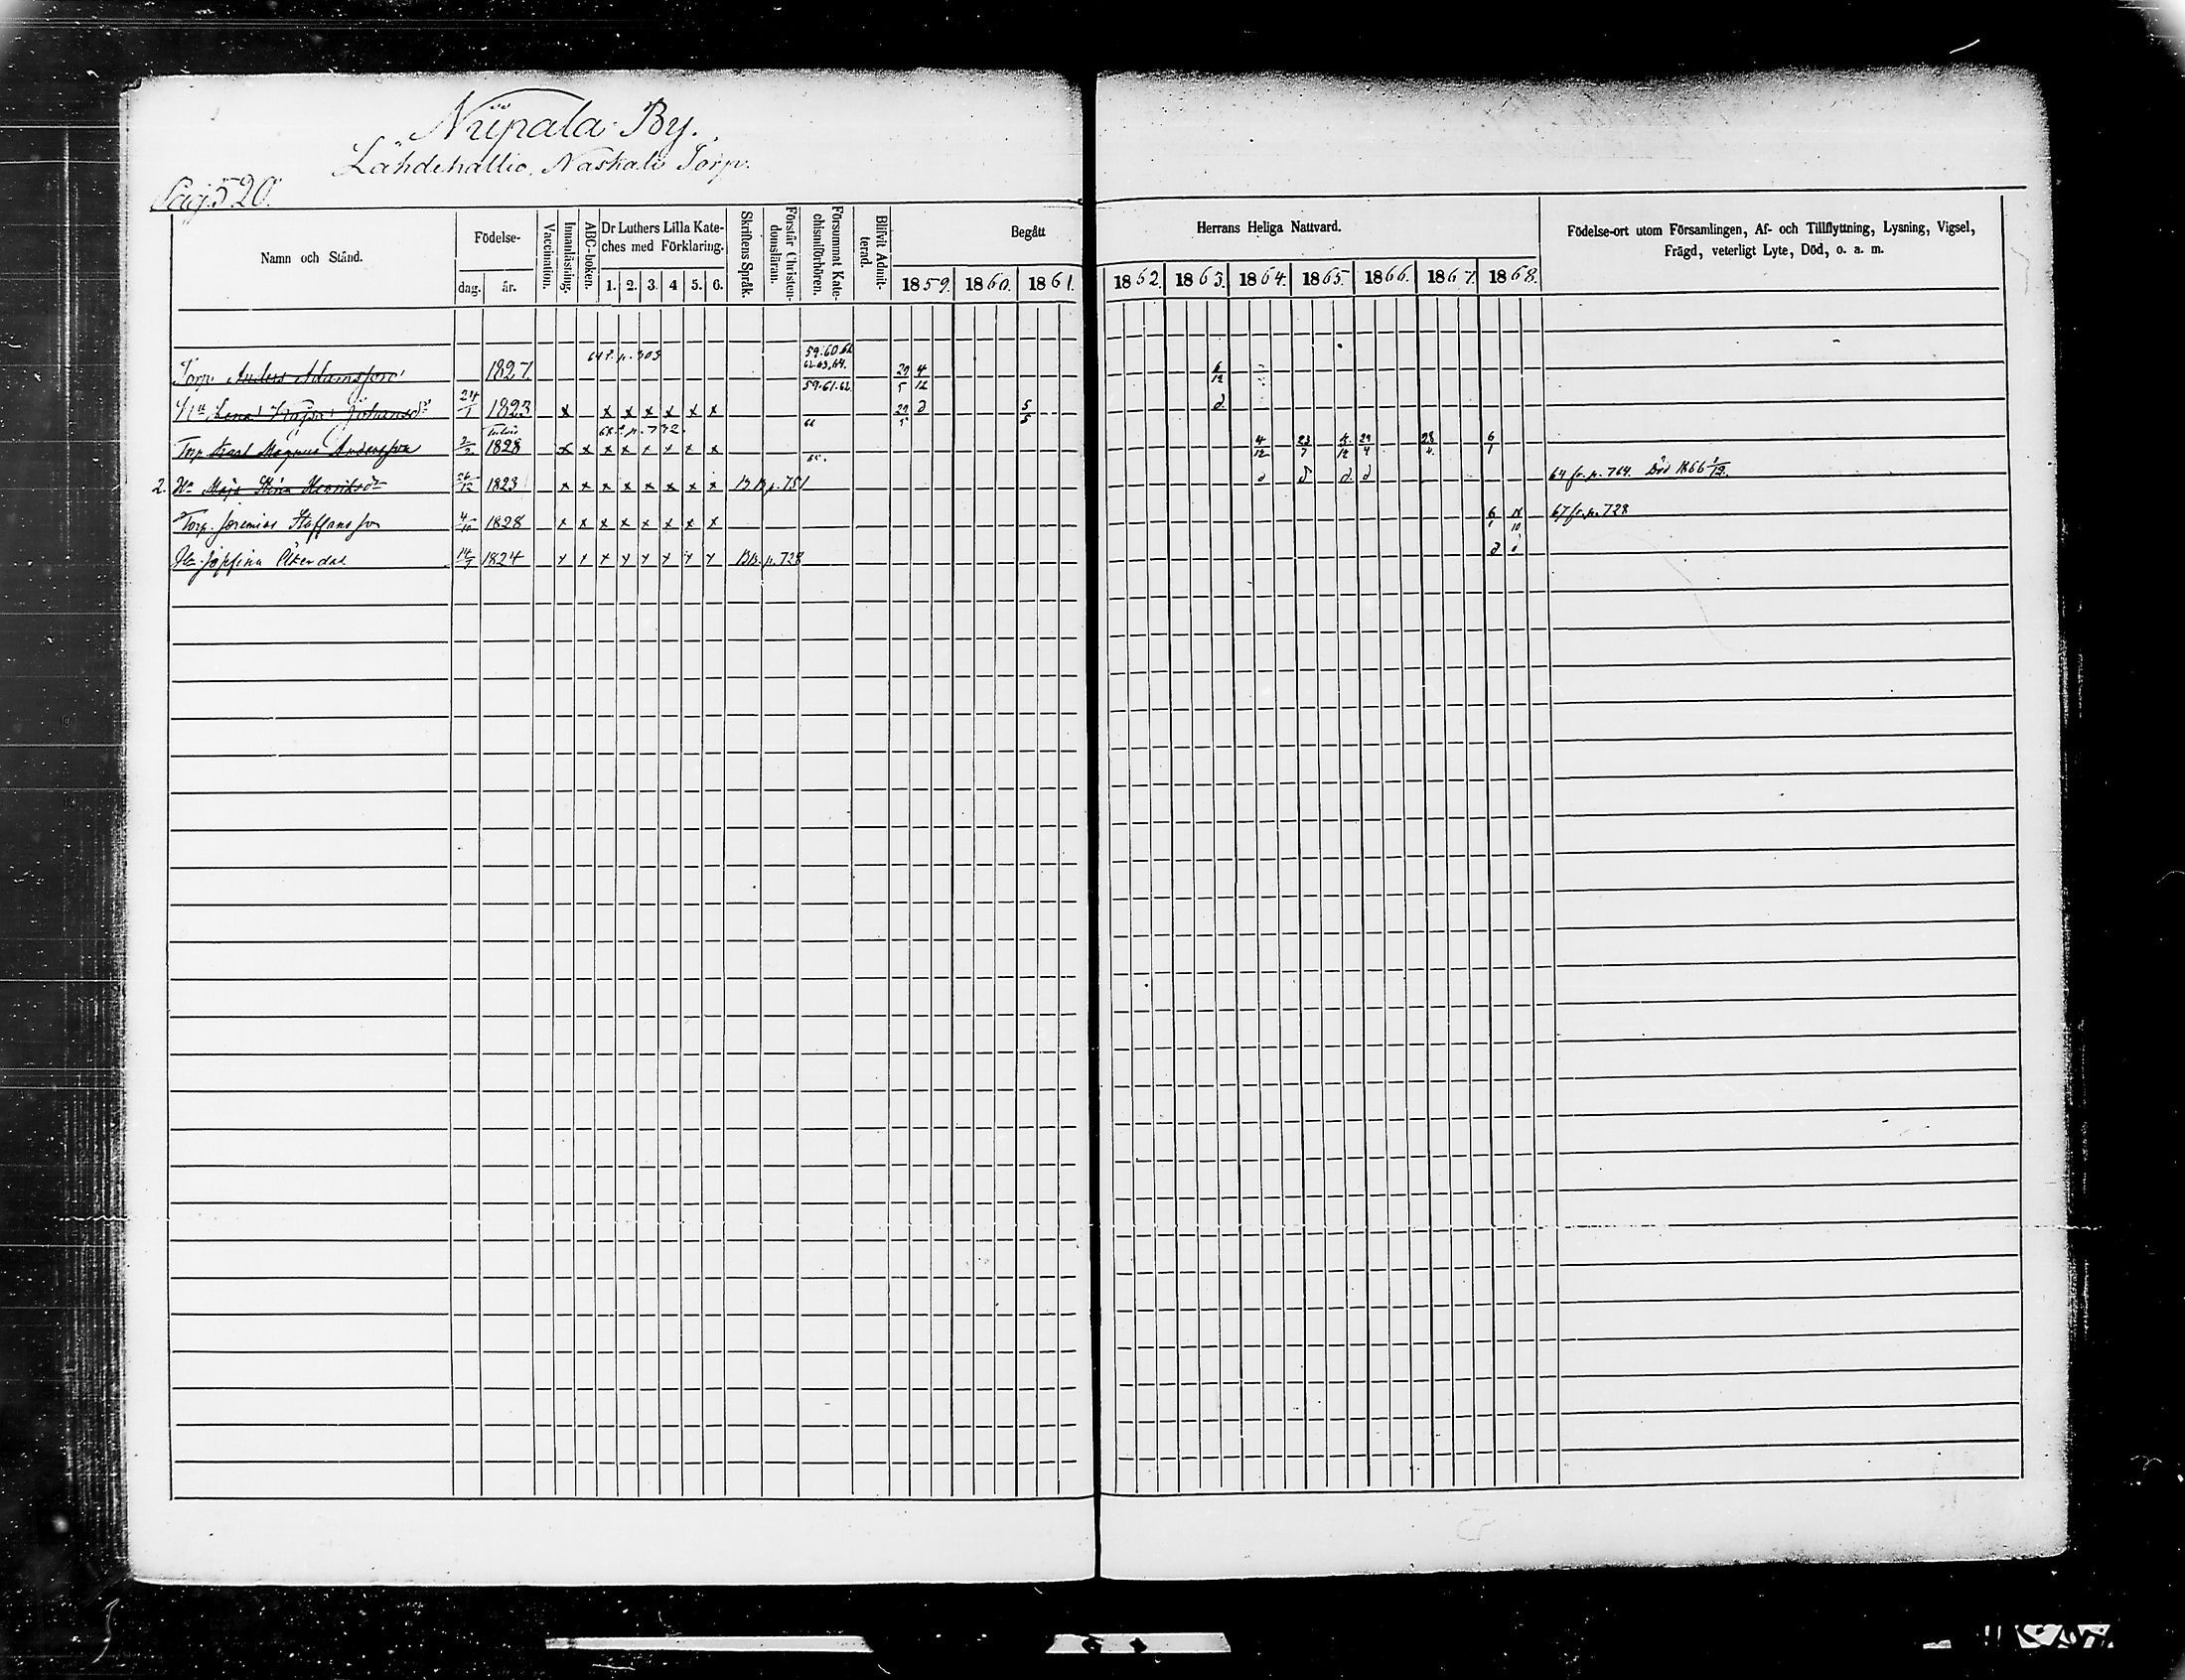 Niipala By.
Lähdekallio, Naskali Torp.
Pag. 520.
Namn och Stånd.
Födelse-
dag. år.
Vaccination.
Innanläsning.
ABC-boken.
Dr Luthers Lilla Kate-
ches med Förklaring.
1. 2. 3. 4 5. 6.
Skriftens Språk.
Förstår Christen-
domsläran.
Försummat Kate-
chismiförhören.
Blifvit Admit-
terad.
Begått
1859. 1860. 1861.
Herrans Heliga Nattvard.
1862. 1863. 1864. 1865. 1866. 1867. 1868.
Födelse-ort utom Församlingen, Af- och Tillflyttning, Lysning, Vigsel,
Frägd, veterligt Lyte, Död, o. a. m.
Torp. Anders Adamsson 1827 59.60.61 62.63.64. 29/5 4/12 6/12
Hu Lena Kajsa Johansdr 24/1 1823 x x x x x x x 59.61.62. 29/5 d 5/5 d.
Torp. Magnus Andersson 1828 x x x x x x x x 4/12 23/7 29/4 23/4 6/1
2. Hu Maja Stina Henriksdr 1823 x x x x x x x x BB p. 751 d d d d 64 fr. p. 764. Död 1866 1/12.
Torp. Jeremias Staffansson 4/10 1828 x x x x x x x x 6/1 67 fr. p. 728
Hu Josefina Åkerdal 14/7 1824 x x x x x x x x BB. p. 728 d d